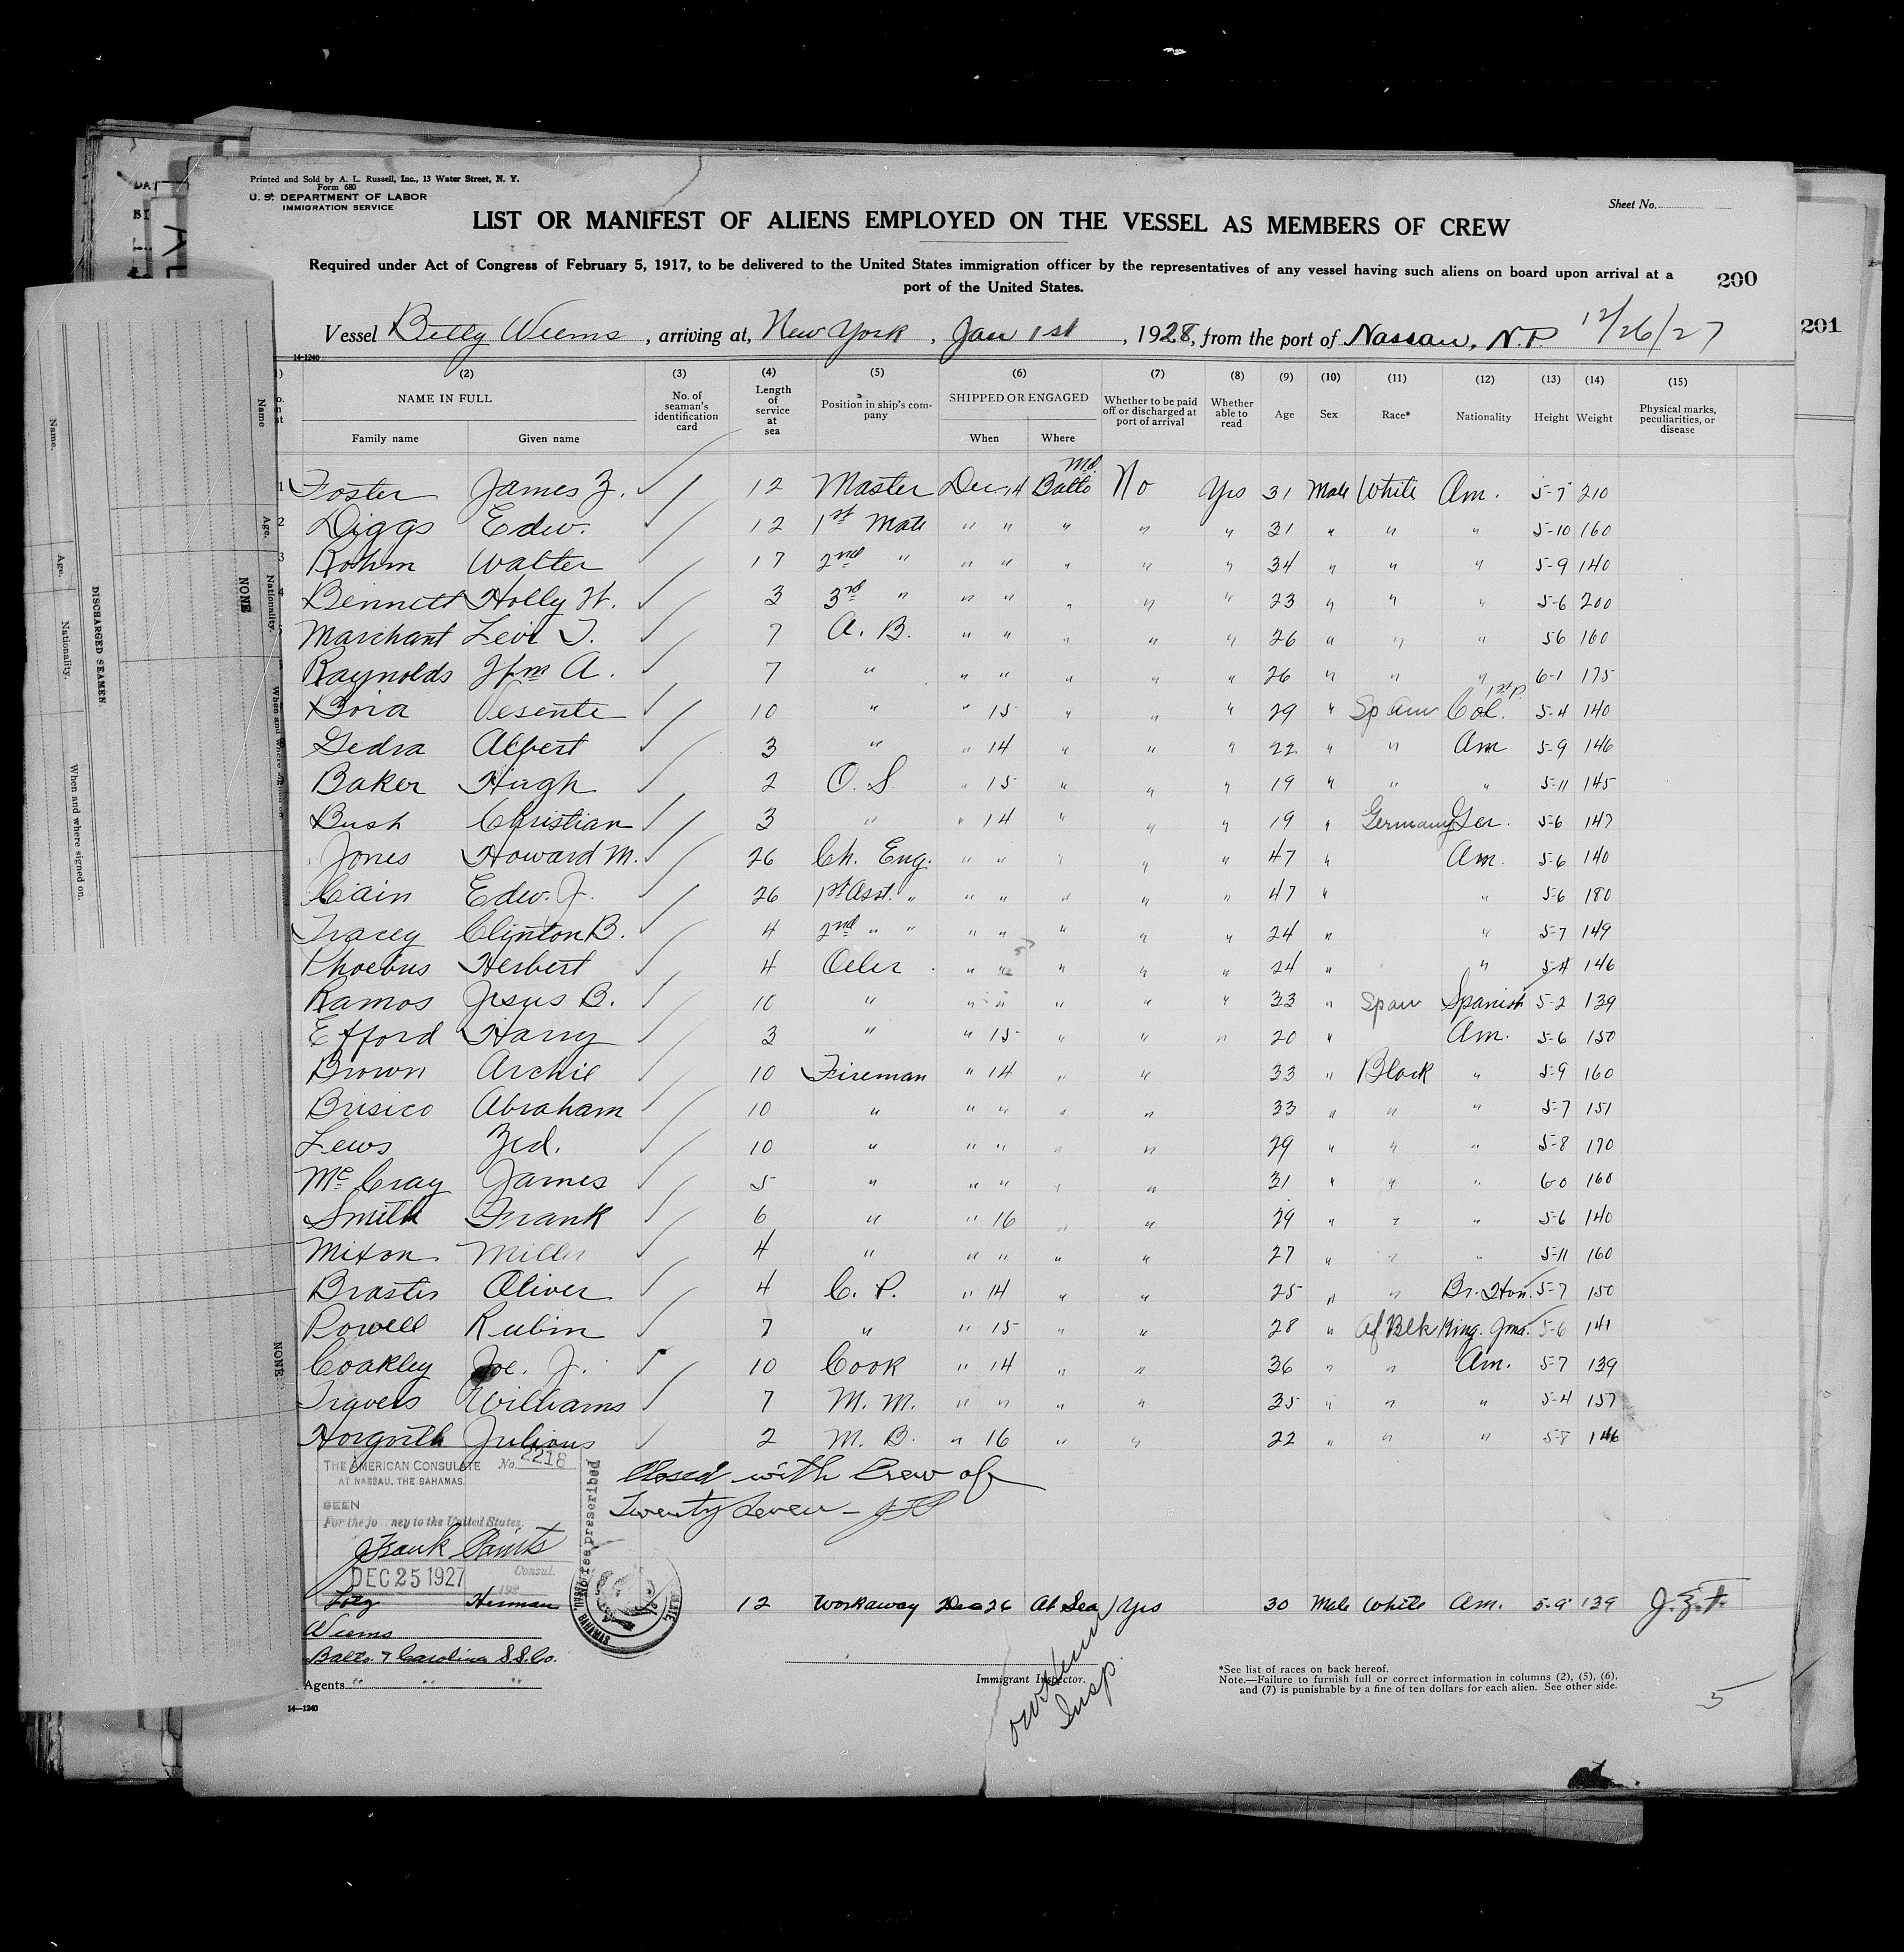 Printed and Sold by A. L. Russell, Inc., 13 Water Street, N. Y.
Form 680
U. S. DEPARTMENT OF LABOR
IMMIGRATION SERVICE
Sheet No.
LIST OR MANIFEST OF ALIENS EMPLOYED ON THE VESSEL AS MEMBERS OF CREW
Required under Act of Congress of February 5, 1917, to be delivered to the United States immigration officer by the representatives of any vessel having such aliens on board upon arrival at a
port of the United States.
200
201
Vessel Betty Weems, arriving at, New York, Jan 1st, 1928, from the port of Nassau, N.P. 12/26/27
14-1240
(2) (3) (4) (5) (6) (7) (8) (9) (10) (11) (12) (13) (14) (15)
NAME IN FULL No. of seaman's identification card Length of service at sea Position in ship's company SHIPPED OR ENGAGED Whether to be paid off or discharged at port of arrival Whether able to read Age Sex Race* Nationality Height Weight Physical marks, peculiarities, or disease
Family name Given name When Where
1 Foster James Z. 12 Master Dec 14 Balto Md. No Yes 31 Male White Am. 5-7 210
2 Diggs Edw. 12 1st Mate " " " " " 31 " " " 5-10 160
3 Rohm Walter 17 2nd " " " " " " 34 " " " 5-9 140
4 Bennett Holly W. 3 3rd " " " " " " 23 " " " 5-6 200
5 Marchant Levi T. 7 A. B. " " " " " 26 " " " 5 6 160
Raynolds Wm A. 7 " " " " " " 26 " " " 6-1 175
Boia Vesente 10 " " 15 " " " 29 " Spam Col. 5-4 140
Gedra Albert 3 " " 14 " " " 22 " " Am 5-9 146
Baker Hugh 2 O. S. " 15 " " " 19 " " " 5-11 145
Bush Christian 3 " " 14 " " " 19 " Germany Ger. 5-6 147
Jones Howard M. 26 Ch. Eng. " " " " " 47 " Am. 5-6 140
Cain Edw. J. 26 1st Asst. " " " " " " 47 " " 5-6 180
Tracey Clinton B. 4 2nd " " " " " " " 24 " " 5-7 149
Phoebus Herbert 4 Oiler " " " " " 24 " " 5-4 146
Ramos Jesus B. 10 " " " " " " 33 " Span Spanish 5-2 139
Efford Harry 3 " " 15 " " " 20 " Am. 5-6 150
Brown Archie 10 Fireman " 14 " " 33 " Black " 5-9 160
Brisico Abraham 10 " " " " " 33 " " " 5-7 151
Lews Zed. 10 " " " " " 29 " " " 5-8 170
McCray James 5 " " " " " 31 " " " 6-0 160
Smith Frank 6 " " 16 " " 29 " " " 5-6 140
Mixon Miller 4 " " " " " 27 " " " 5-11 160
Braster Oliver 4 C. P. " 14 " " 25 " " Br. Hon. 5-7 150
Powell Rubin 7 " " 15 " " 28 " Af Blk King. Jma. 5-6 141
Coakley Joe. J. 10 Cook " 14 " " 36 " " Am. 5-7 139
Travers Williams 7 M. M. " " " " 35 " " " 5-4 157
Horgorth Julious 2 M. B. " 16 " " 22 " " " 5-8 146
Closed with Crew of
Twenty Seven
THE AMERICAN CONSULATE No. 2218
AT NASSAU, THE BAHAMAS.
SEEN
For the jo ney to the United States.
Consul.
DEC 25 1927
192
fee prescribed
Herman 12 Workaway Dec 26 At Sea Yes 30 Male White Am. 5-9 139 J.Z.F.
Weems
Balto. & Carolina S.S. Co.
Agents " " "
Immigrant Inspector.
Insp.
*See list of races on back hereof.
Note.—Failure to furnish full or correct information in columns (2), (5), (6),
and (7) is punishable by a fine of ten dollars for each alien. See other side.
14—1240
5
DISCHARGED SEAMEN.
Name. Age. Nationality. When and where signed on.
Name Age. Nationality.
NONE
NONE